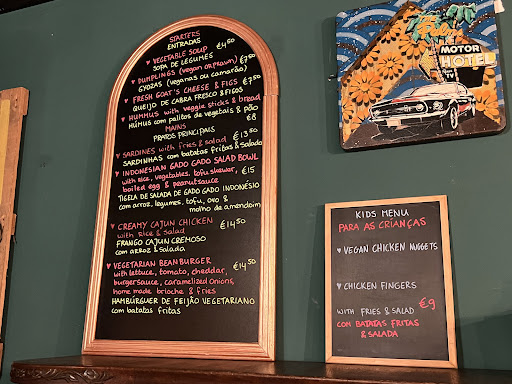 STARTERS
ENTRADAS
♥ VEGETABLE SOUP €4.50
SOPA DE LEGUMES
♥ DUMPLINGS (vegan or prawn) €7.50
GYOZAS (veganas ou camarão)
♥ FRESH GOAT'S CHEESE & FIGS €7.50
QUEIJO DE CABRA FRESCO & FIGOS
♥ HUMMUS with veggie sticks & bread
HÚMUS com palitos de vegetais & pão
€8
MAINS
PRATOS PRINCIPAIS
♥ SARDINES with fries & salad €13.50
SARDINHAS com batatas fritas & salada
♥ INDONESIAN GADO GADO SALAD BOWL
with rice, vegetables, tofu skewer, €15
boiled egg & peanut sauce
TIGELA DE SALADA DE GADO GADO INDONÉSIO
com arroz, legumes, tofu, ovo &
molho de amendoim
♥ CREAMY CAJUN CHICKEN €14.50
with Rice & Salad
FRANGO CAJUN CREMOSO
com arroz & salada
♥ VEGETARIAN BEANBURGER €14.50
with lettuce, tomato, cheddar,
burger sauce, caramelized onions,
home made brioche & fries
HAMBÚRGUER DE FEIJÃO VEGETARIANO
com batatas fritas
The Palms
MOTOR
HOTEL
TV
KIDS MENU
PARA AS CRIANÇAS
♥ VEGAN CHICKEN NUGGETS
♥ CHICKEN FINGERS
WITH FRIES & SALAD €9
COM BATATAS FRITAS
& SALADA